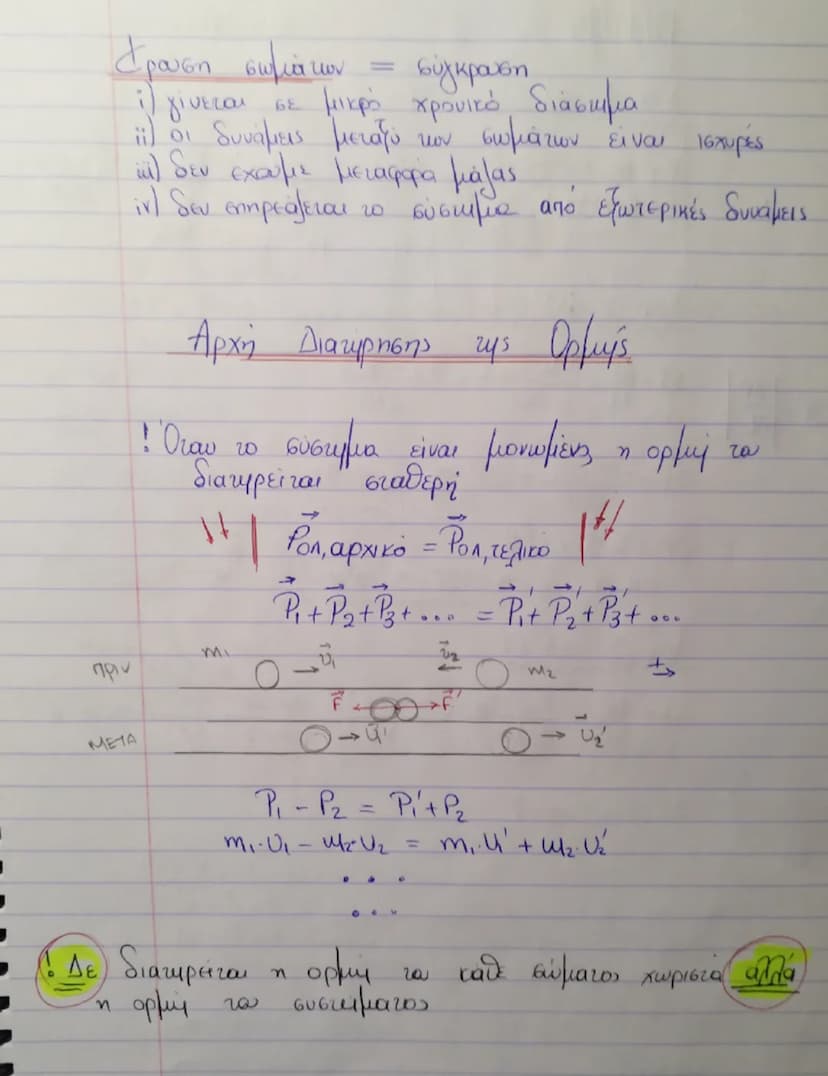 Κρούση σωμάτων = σύγκρουση
i) γίνεται σε μικρό χρονικό διάστημα
ii) οι δυνάμεις μεταξύ των σωμάτων είναι ισχυρές
iii) δεν έχουμε μεταφορά μάζας
iv) δεν επηρεάζεται το σύστημα από εξωτερικές δυνάμεις
Αρχή Διατήρησης της Ορμής
! Όταν το σύστημα είναι μονωμένο η ορμή του
διατηρείται σταθερή
P⃗ολ,αρχικό = P⃗ολ,τελικό
P⃗₁ + P⃗₂ + P⃗₃ + ... = P⃗₁' + P⃗₂' + P⃗₃' + ...
ΠΡΙΝ m₁ υ⃗₁ υ⃗₂ m₂ +
F⃗ F⃗'
ΜΕΤΑ υ⃗' υ⃗₂'
P₁ - P₂ = P₁' + P₂
m₁·υ₁ - m₂·υ₂ = m₁·υ' + m₂·υ₂'
. . .
. . .
! Δε διατηρείται η ορμή του κάθε σώματος χωριστά αλλά
η ορμή του συστήματος